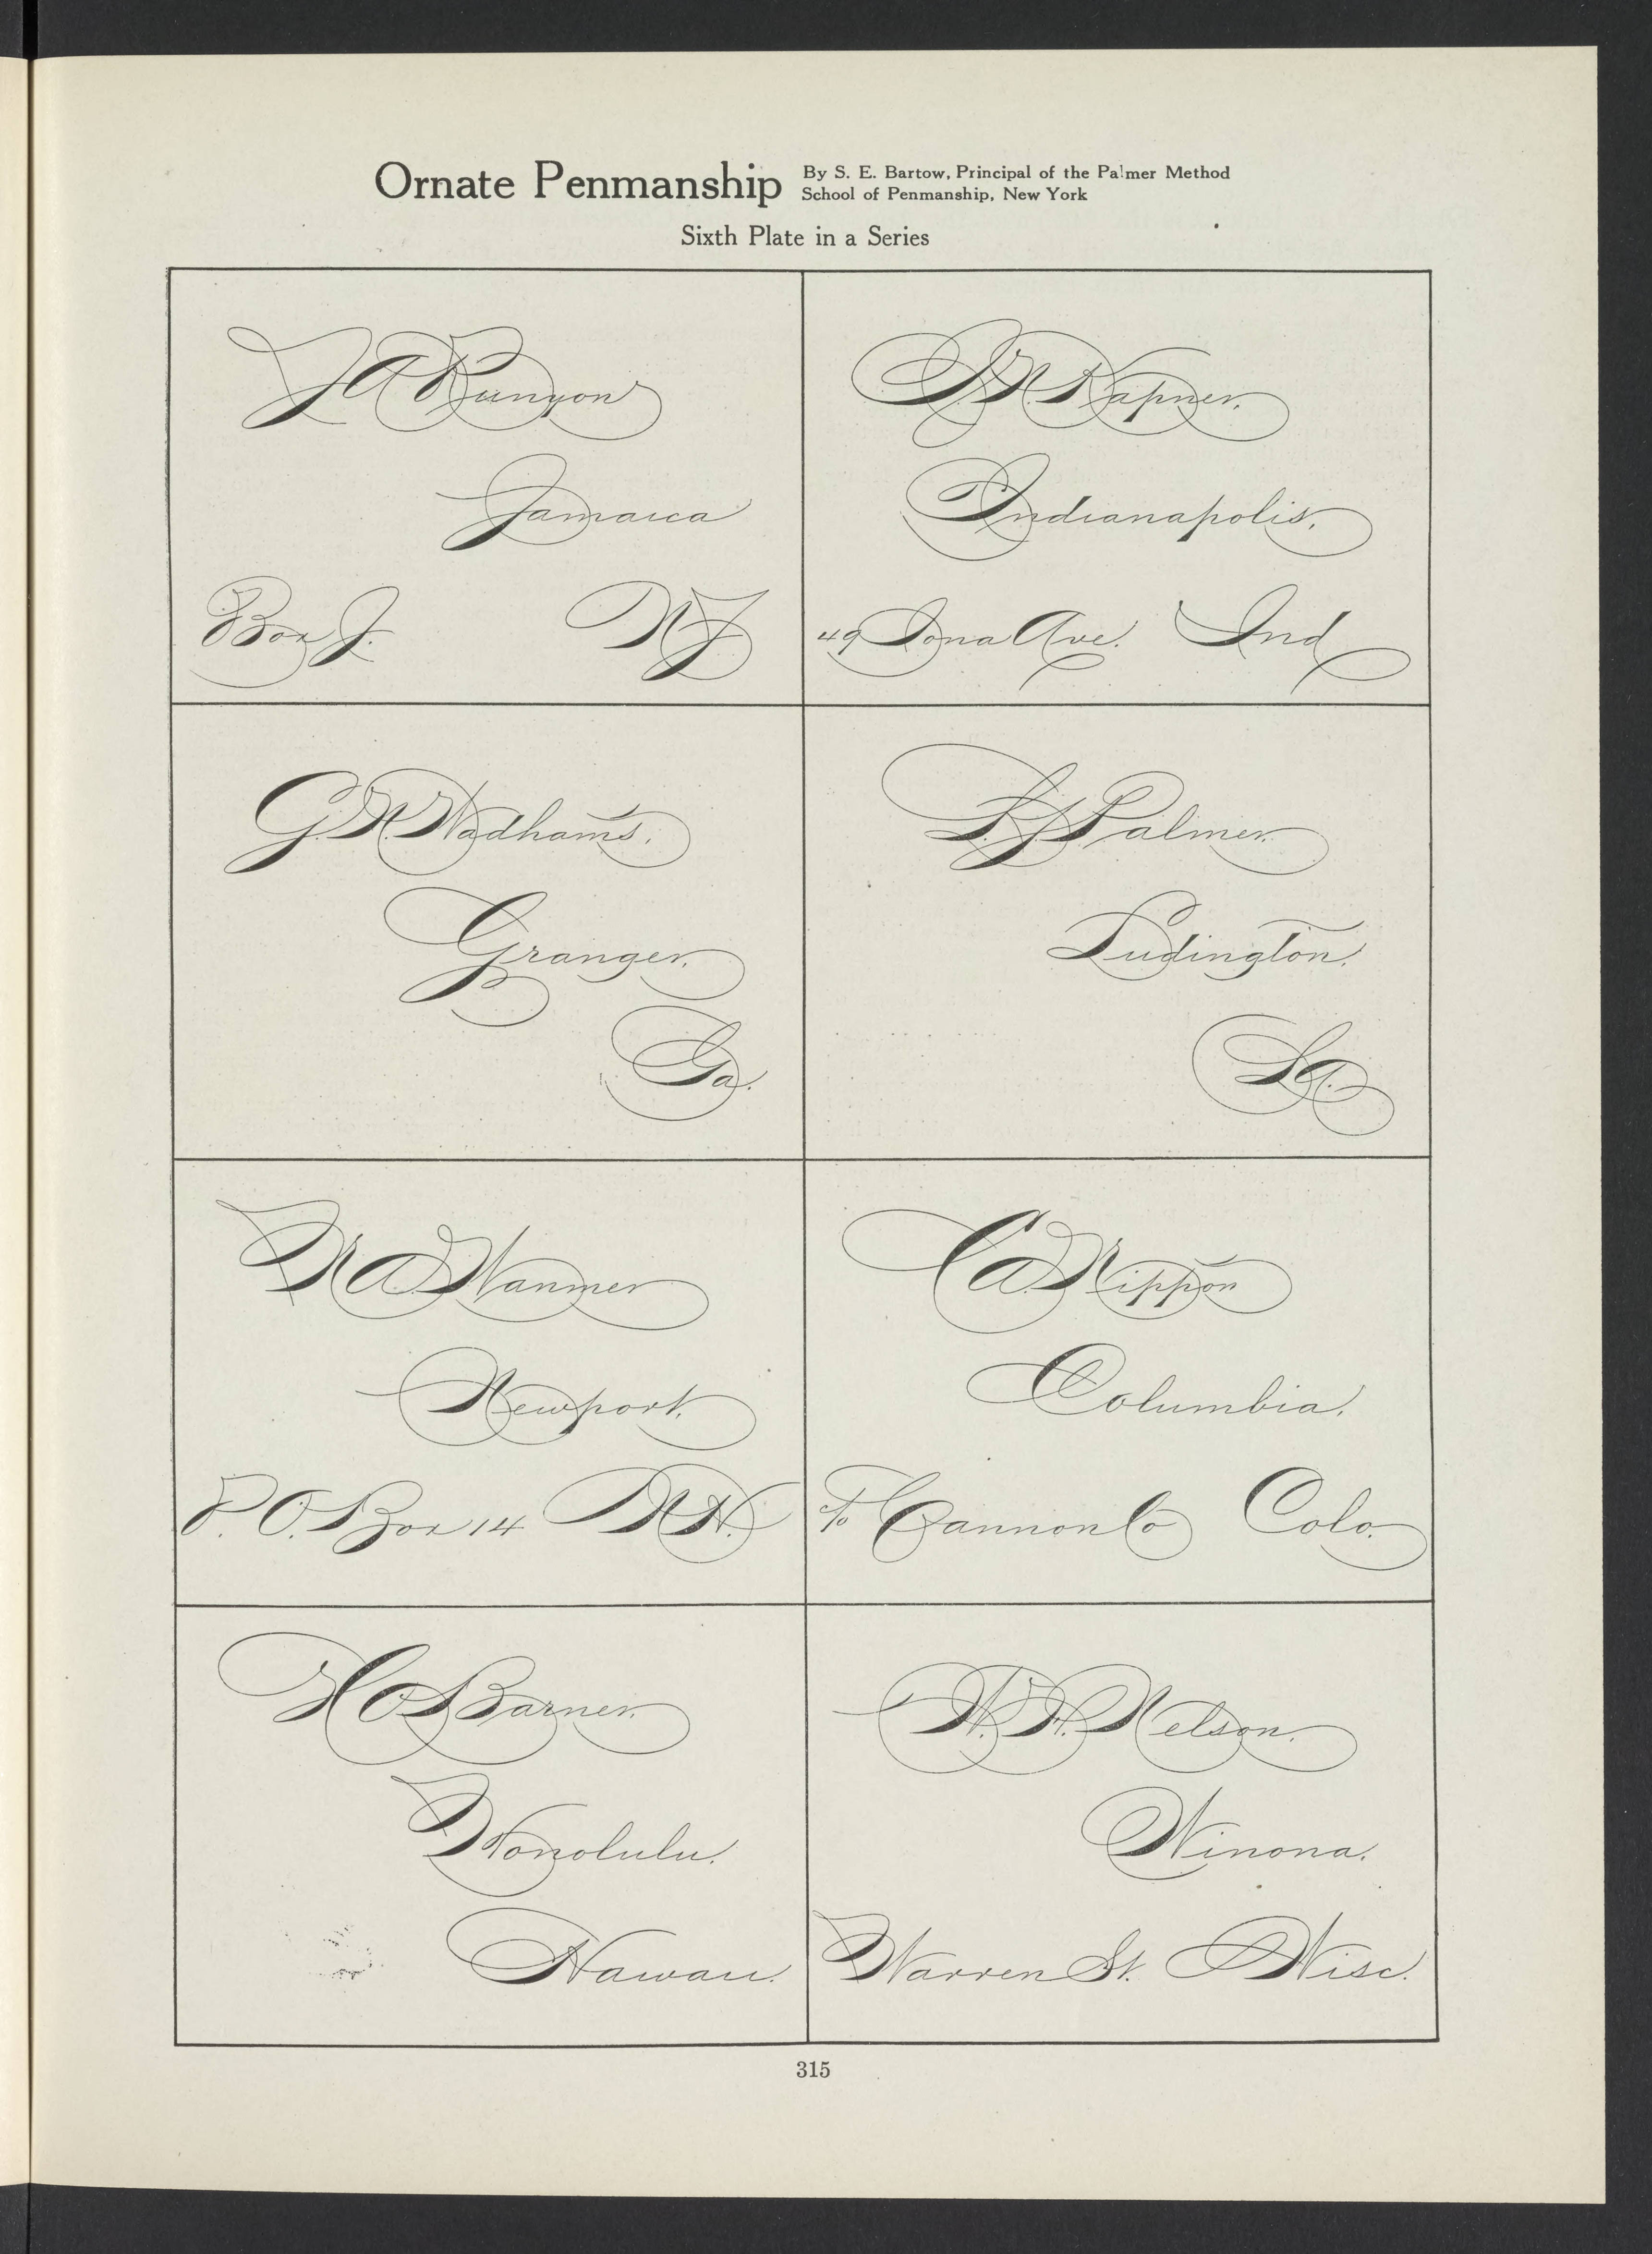 Ornate Penmanship
By S. E. Bartow, Principal of the Palmer Method
School of Penmanship, New York
Sixth Plate in a Series
J A Runyon
Jamaica
Box J. N J
Indianapolis.
49 Iona Ave. Ind
G. W. Wadhams.
Granger.
Ga.
L. J. Palmer.
Ludington.
La.
N A Wanmer
Newport.
P. O. Box 14 N. H.
C A Nippon
Columbia.
c/o Cannon Co Colo.
H O Barner.
Honolulu.
Hawaii.
W. H. Nelson.
Winona.
Warren St. Wisc.
315